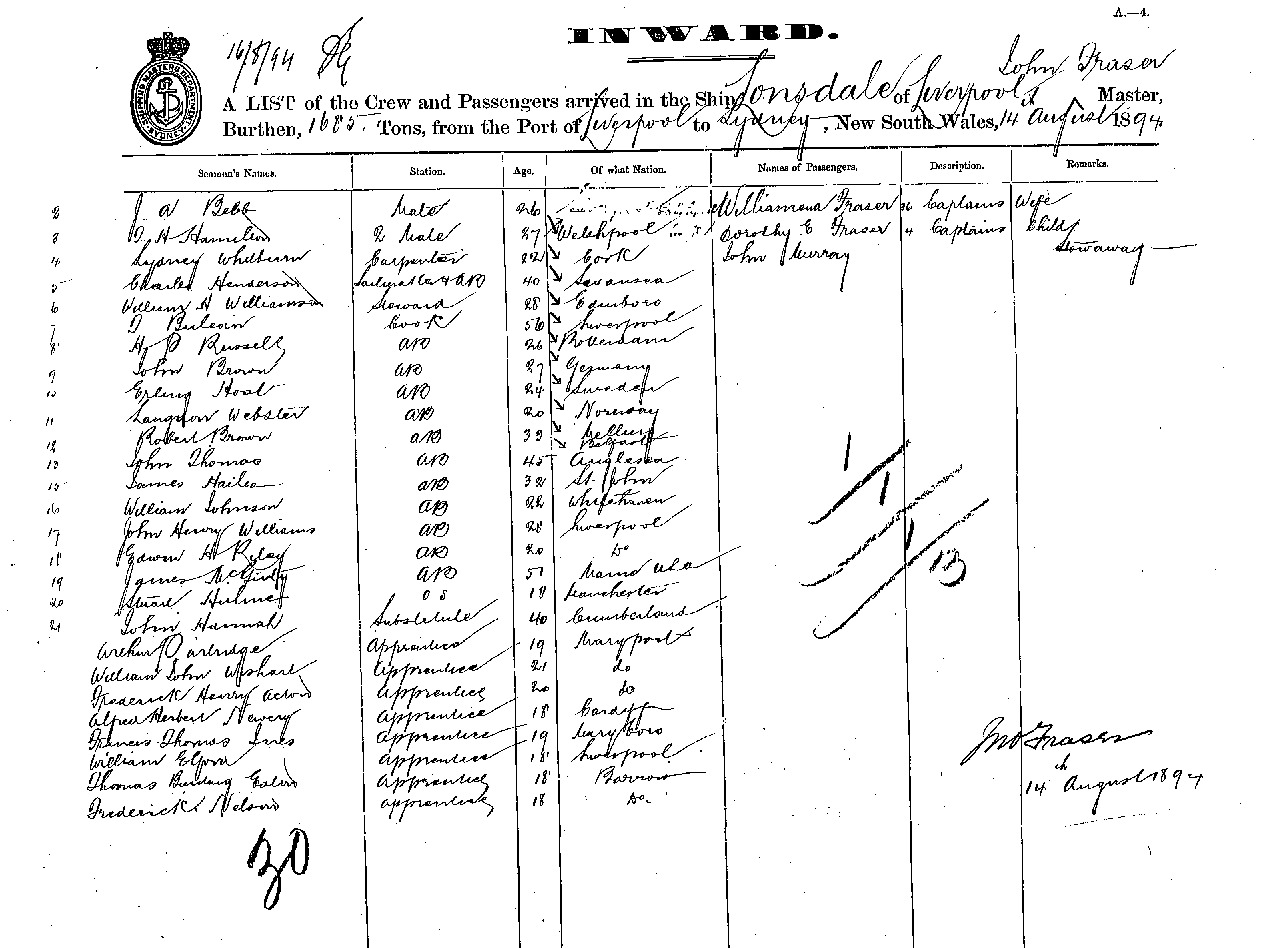 A.—4.
INWARD.
16/8/94
John Fraser
A LIST of the Crew and Passengers arrived in the Ship Lonsdale of Liverpool Master,
Burthen, 1685 Tons, from the Port of Liverpool to Sydney, New South Wales, 14th August 1894
Seamen's Names. Station. Age. Of what Nation. Names of Passengers. Description. Remarks.
2 J A Bebb Mate 26 Williamena Fraser 36 Captains Wife
3 D H Hamilton 2 Mate 27 Welchpool Dorothy E Fraser 4 Captains Child
4 Sydney Whilburn Carpenter 22 Cork John Murray Stowaway
5 Charles Henderson Sailmaker & AB 40 Swansea
6 William H Williamson Steward 28 Edinboro
7 Cook 56 Liverpool
8 H P Russell AB 26 Rotterdam
9 John Brown AB 27 Germany
10 Erling Hoal AB 24 Sweden
11 Langdon Webster AB 20 Norway
12 Robert Brown AB 33 Belfast
13 John Thomas AB 45 Anglesea
15 James AB 32 St. John
16 William Johnson AB 22 Whitehaven
17 John Henry Williams AB 28 Liverpool
18 Edwin H Ryley AB 20 Do
19 James McGinty AB 51 Maine USA
20 Stuart Hulme OS 18 Manchester
21 John Hannah Substitute 40 Cumberland
Arthur Partridge Apprentice 19 Maryport
William John Wishart Apprentice 21 do
Frederick Henry Acton Apprentice 20 do
Alfred Herbert Newery Apprentice 18 Cardiff
Francis Thomas Ines Apprentice 19 Maryboro
William Apprentice 18 Liverpool
Thomas Apprentice 18 Barrow
Frederick Nelson Apprentice 18 Do.
1
1
1
13
Jno Fraser
14th August 1894
30